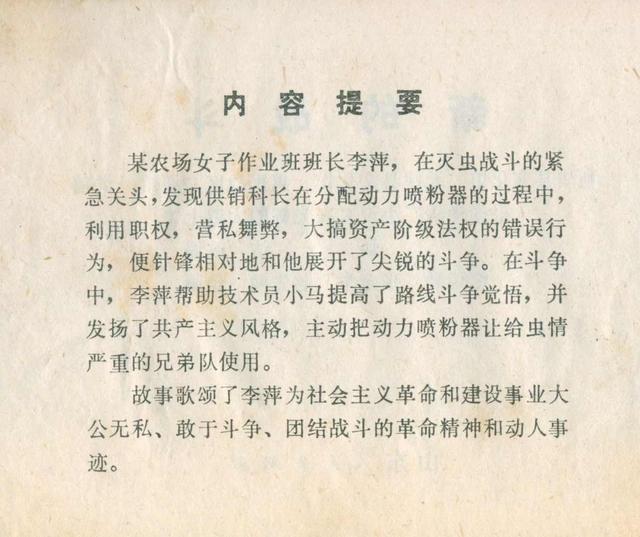 内容提要
某农场女子作业班班长李萍，在灭虫战斗的紧
急关头，发现供销科长在分配动力喷粉器的过程中，
利用职权，营私舞弊，大搞资产阶级法权的错误行
为，便针锋相对地和他展开了尖锐的斗争。在斗争
中，李萍帮助技术员小马提高了路线斗争觉悟，并
发扬了共产主义风格，主动把动力喷粉器让给虫情
严重的兄弟队使用。
故事歌颂了李萍为社会主义革命和建设事业大
公无私、敢于斗争、团结战斗的革命精神和动人事
迹。